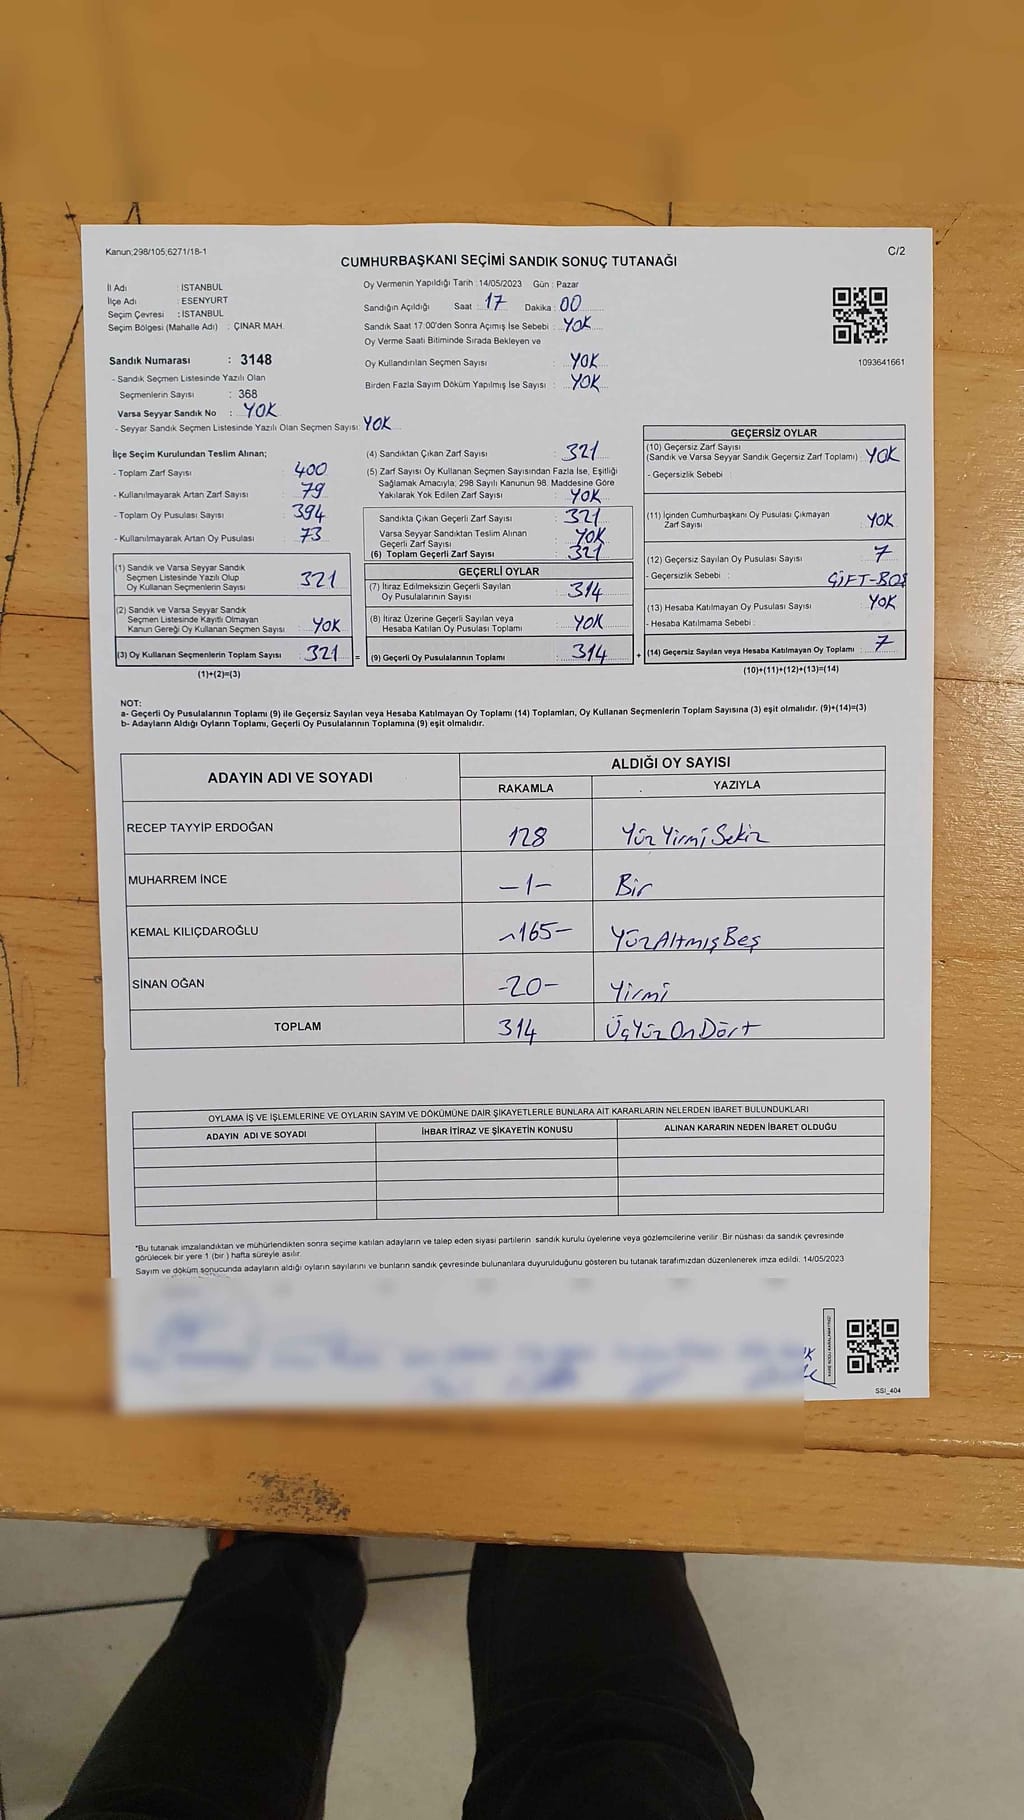 Kanun;298/105,6271/18-1
C/2
CUMHURBAŞKANI SEÇİMİ SANDIK SONUÇ TUTANAĞI
İl Adı : İSTANBUL
İlçe Adı : ESENYURT
Seçim Çevresi : İSTANBUL
Seçim Bölgesi (Mahalle Adı) : ÇINAR MAH.
Sandık Numarası : 3148
- Sandık Seçmen Listesinde Yazılı Olan
Seçmenlerin Sayısı : 368
Varsa Seyyar Sandık No : YOK
- Seyyar Sandık Seçmen Listesinde Yazılı Olan Seçmen Sayısı : YOK
Oy Vermenin Yapıldığı Tarih : 14/05/2023 Gün : Pazar
Sandığın Açıldığı Saat : 17 Dakika : 00
Sandık Saat 17:00'den Sonra Açımış İse Sebebi : YOK
Oy Verme Saati Bitiminde Sırada Bekleyen ve
Oy Kullandırılan Seçmen Sayısı : YOK
Birden Fazla Sayım Döküm Yapılmış İse Sayısı : YOK
1093641661
İlçe Seçim Kurulundan Teslim Alınan;
- Toplam Zarf Sayısı : 400
- Kullanılmayarak Artan Zarf Sayısı : 79
- Toplam Oy Pusulası Sayısı : 394
- Kullanılmayarak Artan Oy Pusulası : 73
(1) Sandık ve Varsa Seyyar Sandık
Seçmen Listesinde Yazılı Olup
Oy Kullanan Seçmenlerin Sayısı : 321
(2) Sandık ve Varsa Seyyar Sandık
Seçmen Listesinde Kayıtlı Olmayan
Kanun Gereği Oy Kullanan Seçmen Sayısı : YOK
(3) Oy Kullanan Seçmenlerin Toplam Sayısı : 321 =
(1)+(2)=(3)
(4) Sandıktan Çıkan Zarf Sayısı : 321
(5) Zarf Sayısı Oy Kullanan Seçmen Sayısından Fazla İse, Eşitliği
Sağlamak Amacıyla, 298 Sayılı Kanunun 98. Maddesine Göre
Yakılarak Yok Edilen Zarf Sayısı : YOK
Sandıkta Çıkan Geçerli Zarf Sayısı : 321
Varsa Seyyar Sandıktan Teslim Alınan
Geçerli Zarf Sayısı : YOK
(6) Toplam Geçerli Zarf Sayısı : 321
GEÇERLİ OYLAR
(7) İtiraz Edilmeksizin Geçerli Sayılan
Oy Pusulalarının Sayısı : 314
(8) İtiraz Üzerine Geçerli Sayılan veya
Hesaba Katılan Oy Pusulası Toplamı : YOK
(9) Geçerli Oy Pusulalarının Toplamı : 314 +
GEÇERSİZ OYLAR
(10) Geçersiz Zarf Sayısı
(Sandık ve Varsa Seyyar Sandık Geçersiz Zarf Toplamı) : YOK
- Geçersizlik Sebebi
(11) İçinden Cumhurbaşkanı Oy Pusulası Çıkmayan
Zarf Sayısı : YOK
(12) Geçersiz Sayılan Oy Pusulası Sayısı : 7
- Geçersizlik Sebebi : ÇİFT-BOŞ
(13) Hesaba Katılmayan Oy Pusulası Sayısı : YOK
- Hesaba Katılmama Sebebi :
(14) Geçersiz Sayılan veya Hesaba Katılmayan Oy Toplamı : 7
(10)+(11)+(12)+(13)=(14)
NOT:
a- Geçerli Oy Pusulalarının Toplamı (9) ile Geçersiz Sayılan veya Hesaba Katılmayan Oy Toplamı (14) Toplamları, Oy Kullanan Seçmenlerin Toplam Sayısına (3) eşit olmalıdır. (9)+(14)=(3)
b- Adayların Aldığı Oyların Toplamı, Geçerli Oy Pusulalarının Toplamına (9) eşit olmalıdır.
ADAYIN ADI VE SOYADI ALDIĞI OY SAYISI
RAKAMLA YAZIYLA
RECEP TAYYİP ERDOĞAN 128 Yüz Yirmi Sekiz
MUHARREM İNCE -1- Bir
KEMAL KILIÇDAROĞLU -165- YüzAltmışBeş
SİNAN OĞAN -20- Yirmi
TOPLAM 314 ÜçYüzOnDört
OYLAMA İŞ VE İŞLEMLERİNE VE OYLARIN SAYIM VE DÖKÜMÜNE DAİR ŞİKAYETLERLE BUNLARA AİT KARARLARIN NELERDEN İBARET BULUNDUKLARI
ADAYIN ADI VE SOYADI İHBAR İTİRAZ VE ŞİKAYETİN KONUSU ALINAN KARARIN NEDEN İBARET OLDUĞU
*Bu tutanak imzalandıktan ve mühürlendikten sonra seçime katılan adayların ve talep eden siyasi partilerin sandık kurulu üyelerine veya gözlemcilerine verilir. Bir nüshası da sandık çevresinde
görülecek bir yere 1 (bir) hafta süreyle asılır.
Sayım ve döküm sonucunda adayların aldığı oyların sayılarını ve bunların sandık çevresinde bulunanlara duyurulduğunu gösteren bu tutanak tarafımızdan düzenlenerek imza edildi. 14/05/2023
SSI_404